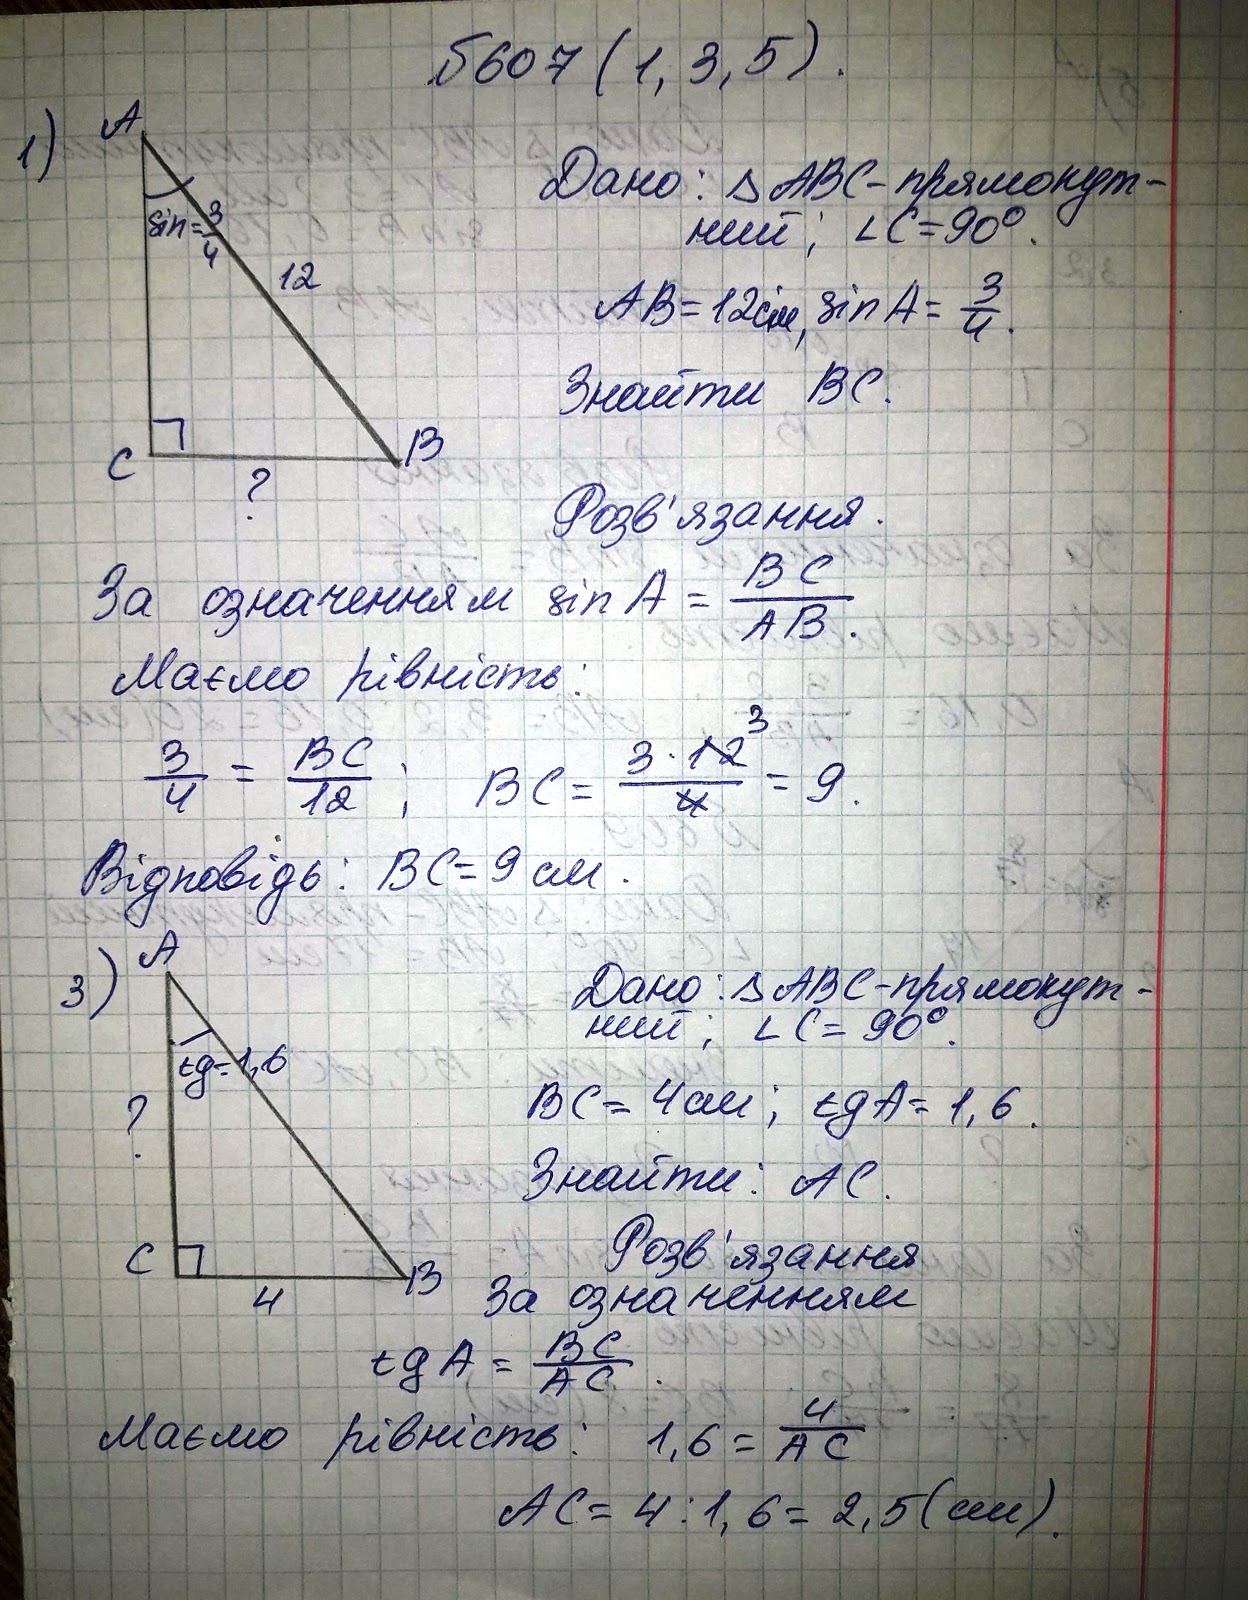 №607 (1, 3, 5).
1)
A
sin = 3/4
12
C
B
?
Дано: △ABC - прямокут-
ний; ∠C = 90°.
AB = 12 см, sin A = 3/4.
Знайти BC.
Розв'язання.
За означенням sin A = BC/AB.
Маємо рівність:
3/4 = BC/12; BC = 3·12³/4 = 9.
Відповідь: BC = 9 см.
3)
A
tg = 1,6
?
C
4
B
Дано: △ABC - прямокут-
ний; ∠C = 90°.
BC = 4 см; tg A = 1,6.
Знайти: AC.
Розв'язання
За означенням
tg A = BC/AC.
Маємо рівність: 1,6 = 4/AC
AC = 4 : 1,6 = 2,5 (см).